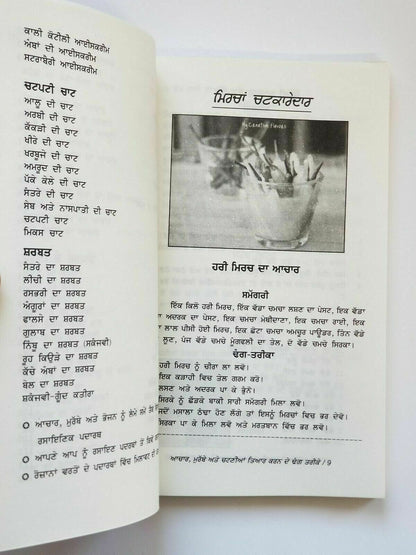 ਕਾਲੀ ਕੰਟੀਲੀ ਆਈਸਕਰੀਮ
ਅੰਬਾਂ ਦੀ ਆਈਸਕਰੀਮ
ਸਟਰਾਬੈਰੀ ਆਈਸਕਰੀਮ
ਚਟਪਟੀ ਚਾਟ
ਆਲੂ ਦੀ ਚਾਟ
ਅਰਬੀ ਦੀ ਚਾਟ
ਕੱਕੜੀ ਦੀ ਚਾਟ
ਖੀਰੇ ਦੀ ਚਾਟ
ਖਰਬੂਜੇ ਦੀ ਚਾਟ
ਅਮਰੂਦ ਦੀ ਚਾਟ
ਪੱਕੇ ਕੇਲੇ ਦੀ ਚਾਟ
ਸੰਤਰੇ ਦੀ ਚਾਟ
ਸੇਬ ਅਤੇ ਨਾਸਪਾਤੀ ਦੀ ਚਾਟ
ਚਟਪਟੀ ਚਾਟ
ਮਿਕਸ ਚਾਟ
ਸ਼ਰਬਤ
ਸੰਤਰੇ ਦਾ ਸ਼ਰਬਤ
ਲੀਚੀ ਦਾ ਸ਼ਰਬਤ
ਰਸਭਰੀ ਦਾ ਸ਼ਰਬਤ
ਅੰਗੂਰਾਂ ਦਾ ਸ਼ਰਬਤ
ਫਾਲਸੇ ਦਾ ਸ਼ਰਬਤ
ਗੁਲਾਬ ਦਾ ਸ਼ਰਬਤ
ਨਿੰਬੂ ਦਾ ਸ਼ਰਬਤ (ਸਕੰਜਵੀ)
ਰੂਹ ਕਿਉੜੇ ਦਾ ਸ਼ਰਬਤ
ਕੱਚੇ ਅੰਬਾਂ ਦਾ ਸ਼ਰਬਤ
ਬੇਲ ਦਾ ਸ਼ਰਬਤ
ਸ਼ਕੰਜਵੀ-ਗੂੰਦ ਕਤੀਰਾ
ਆਚਾਰ, ਮੁਰੱਬੇ ਅਤੇ ਭੋਜਨ ਨੂੰ ਲੰਮੇ ਸਮੇਂ ਤੱਕ
ਰਸਾਇਣਿਕ ਪਦਾਰਥ
ਆਪਣੇ ਆਪ ਨੂੰ ਰਸਾਇਣ ਪਦਾਰਥਾਂ ਤੋਂ ਕਿਵੇਂ
ਰੋਜ਼ਾਨਾ ਵਰਤੋਂ ਦੇ ਪਦਾਰਥਾਂ ਵਿੱਚ ਮਿਲਾਵਟ ਦੀ
ਮਿਰਚਾਂ ਚਟਕਾਰੇਦਾਰ
by Creative Flavors
ਹਰੀ ਮਿਰਚ ਦਾ ਆਚਾਰ
ਸਮੱਗਰੀ
ਇੱਕ ਕਿਲੋ ਹਰੀ ਮਿਰਚ, ਇੱਕ ਵੱਡਾ ਚਮਚਾ ਲਸਣ ਦਾ ਪੇਸਟ, ਇਕ ਵੱਡਾ
ਅਦਰਕ ਦਾ ਪੇਸਟ, ਇਕ ਚਮਚਾ ਮੇਥੀਦਾਣਾ, ਇਕ ਚਮਚਾ ਰਾਈ, ਇਕ
ਲਾਲ ਪੀਸੀ ਹੋਈ ਮਿਰਚ, ਇਕ ਛੋਟਾ ਚਮਚਾ ਅਮਚੂਰ ਪਾਊਡਰ, ਤਿੰਨ ਵੱਡੇ
ਲੂਣ, ਪੰਜ ਵੱਡੇ ਚਮਚੇ ਮੂੰਗਫਲੀ ਦਾ ਤੇਲ, ਦੋ ਵੱਡੇ ਚਮਚੇ ਸਿਰਕਾ।
ਢੰਗ-ਤਰੀਕਾ
ਹਰੀ ਮਿਰਚ ਨੂੰ ਚੀਰਾ ਲਾ ਲਵੋ।
ਇਕ ਕੜਾਹੀ ਵਿਚ ਤੇਲ ਗਰਮ ਕਰੋ।
ਲਸਣ ਅਤੇ ਅਦਰਕ ਪਾ ਕੇ ਭੁੰਨੋ।
ਸਿਰਕੇ ਨੂੰ ਛੱਡਕੇ ਬਾਕੀ ਸਾਰੀ ਸਮੱਗਰੀ ਮਿਲਾ ਲਵੋ।
ਜਦੋਂ ਮਸਾਲਾ ਠੰਢਾ ਹੋਣ ਲੱਗੇ ਤਾਂ ਇਸਨੂੰ ਮਿਰਚਾਂ ਵਿਚ ਭਰ ਦੇਵੋ।
ਸਿਰਕਾ ਪਾ ਕੇ ਮਿਲਾਵੋ ਅਤੇ ਮਰਤਬਾਨ ਵਿੱਚ ਭਰ ਲਵੋ।
ਆਚਾਰ, ਮੁਰੱਬੇ ਅਤੇ ਚਟਣੀਆਂ ਤਿਆਰ ਕਰਨ ਦੇ ਢੰਗ ਤਰੀਕੇ / 9